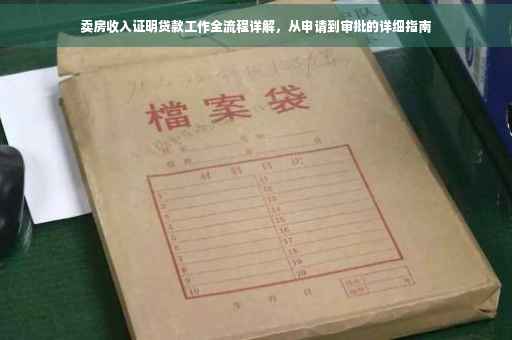 卖房收入证明贷款工作全流程详解，从申请到审批的详细指南
檔案袋
材料目次
1 11
2 12
3 13
4 14
5 15
6 16
7 17
8 18
9 19
10 20
年 月 日